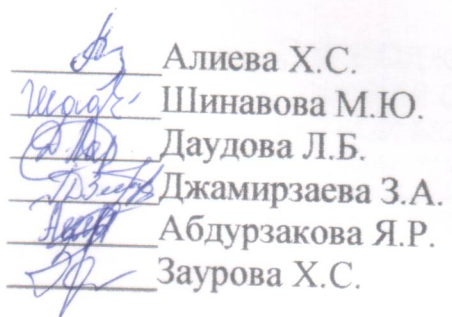 Алиева Х.С.
Шинавова М.Ю.
Даудова Л.Б.
Джамирзаева З.А.
Абдурзакова Я.Р.
Заурова Х.С.